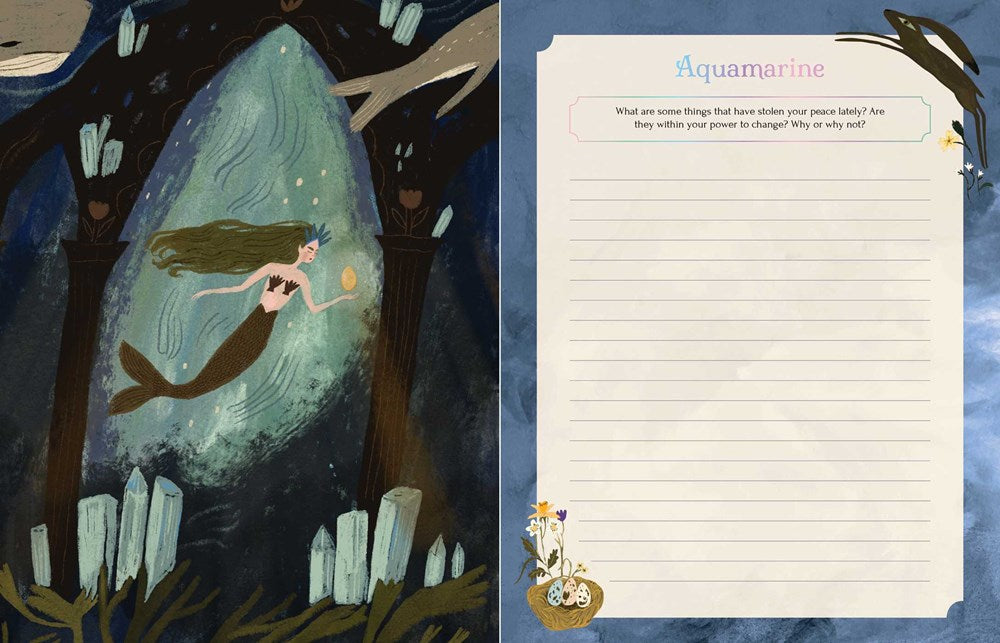 Aquamarine
What are some things that have stolen your peace lately? Are
they within your power to change? Why or why not?